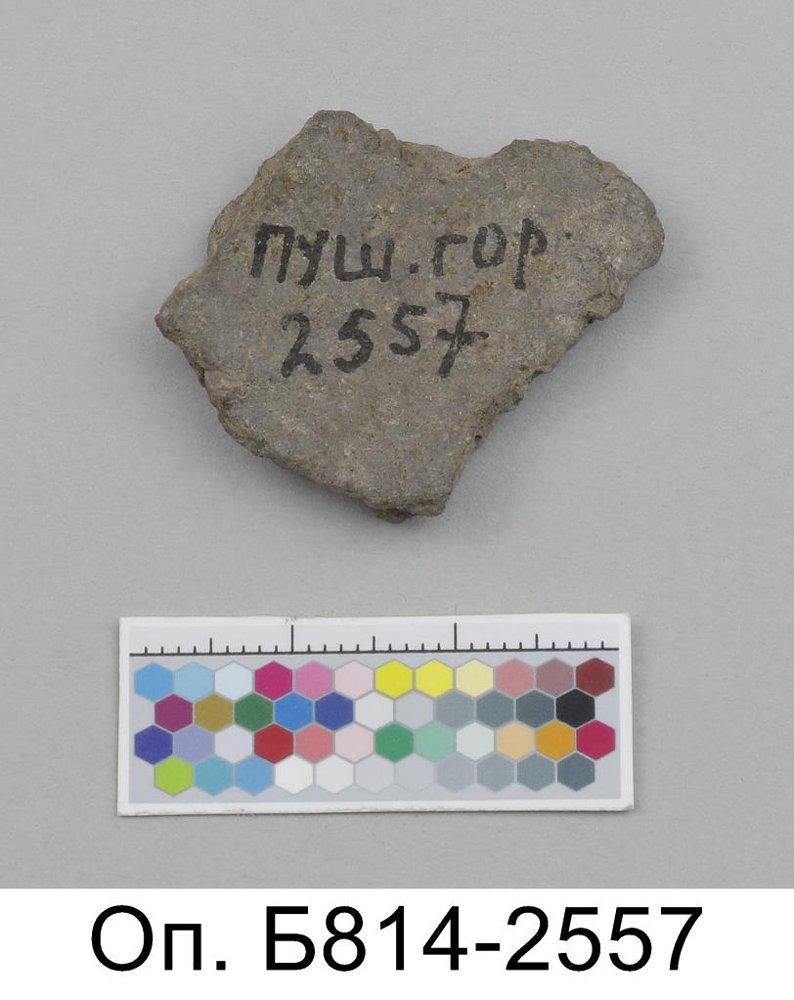 пуш.гор
2557
Оп. Б814-2557